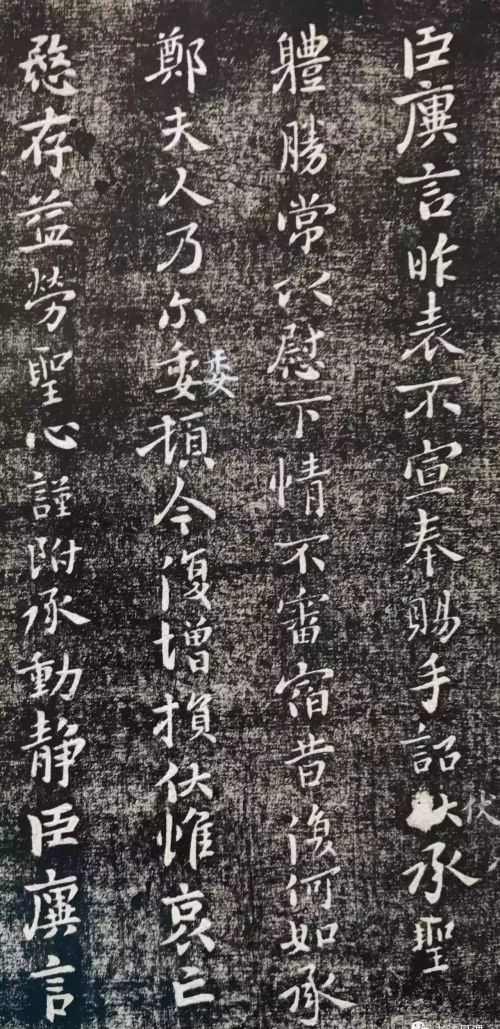 臣廙言昨表不宣奉賜手詔伏承聖
伏
體勝常以慰下情不審宿昔復何如承
鄭夫人乃尔委頓今復增損伏惟哀亡
委
愍存益勞聖心謹附承動静臣廙言